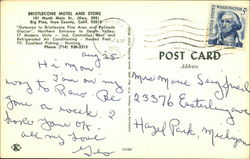 BRISTLECONE MOTEL AND STORE
101 North Main St. (Hwy. 395)
Big Pine, Inyo County, Calif. 93513
"Gateway to Bristlecone Pine Area and Palisade
Glacier". Northern Entrance to Death Valley.
17 Modern Units - Ind. Controlled Heat and
Refrigerated Air Conditioning - Heated Pool
TV. Excellent Fishing - Hunting.
Phone (714) 938-2313
WASHINGTON
5¢
POST CARD
Address
Aug 25
Hi Mom
I am on my
way to
you a week
hope your OK
all my love
Geo
Mrs Marie
23376
Hazel Park, Michigan
K